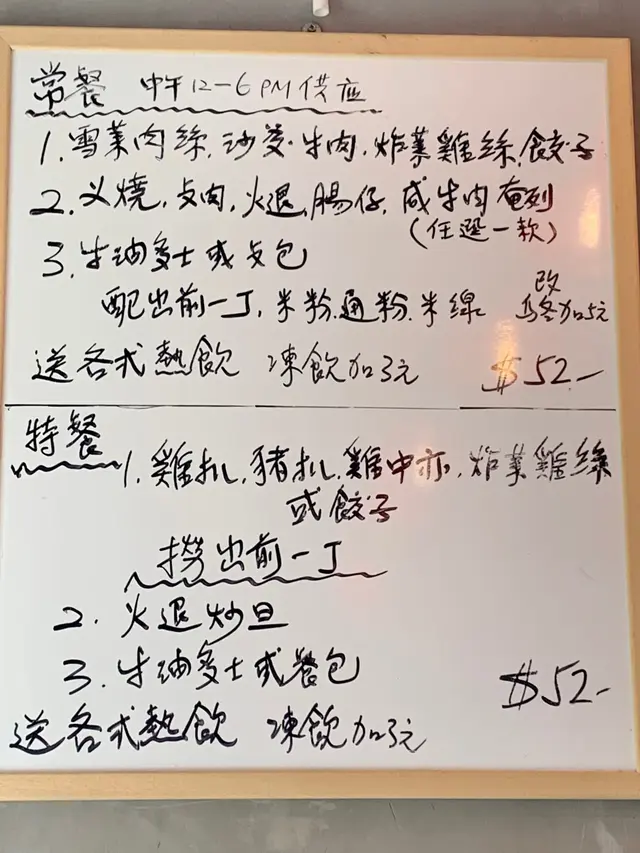 常餐 中午12-6PM供应
1. 雪菜肉絲, 沙爹牛肉, 炸菜雞絲, 餃子
2. 义燒, 卤肉, 火退, 腸仔, 咸牛肉奄列
(任選一款)
3. 牛油多士或包
配出前一丁, 米粉, 通粉, 米線 改烏冬加5元
送各式熱飲 凍飲加3元 $52.-
特餐
1. 雞扒, 豬扒, 雞中亦, 炸菜雞絲
或餃子
撈出前一丁
2. 火退炒旦
3. 牛油多士或餐包
送各式熱飲 凍飲加3元
$52.-